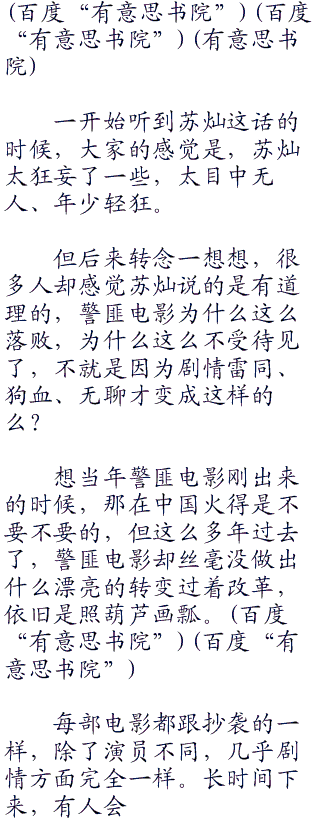 (百度“有意思书院”)(百度
“有意思书院”)(有意思书
院)
一开始听到苏灿这话的
时候，大家的感觉是，苏灿
太狂妄了一些，太目中无
人、年少轻狂。
但后来转念一想想，很
多人却感觉苏灿说的是有道
理的，警匪电影为什么这么
落败，为什么这么不受待见
了，不就是因为剧情雷同、
狗血、无聊才变成这样的
么？
想当年警匪电影刚出来
的时候，那在中国火得是不
要不要的，但这么多年过去
了，警匪电影却丝毫没做出
什么漂亮的转变过着改革，
依旧是照葫芦画瓢。(百度
“有意思书院”)(百度“有
意思书院”)
每部电影都跟抄袭的一
样，除了演员不同，几乎剧
情方面完全一样。长时间下
来，有人会